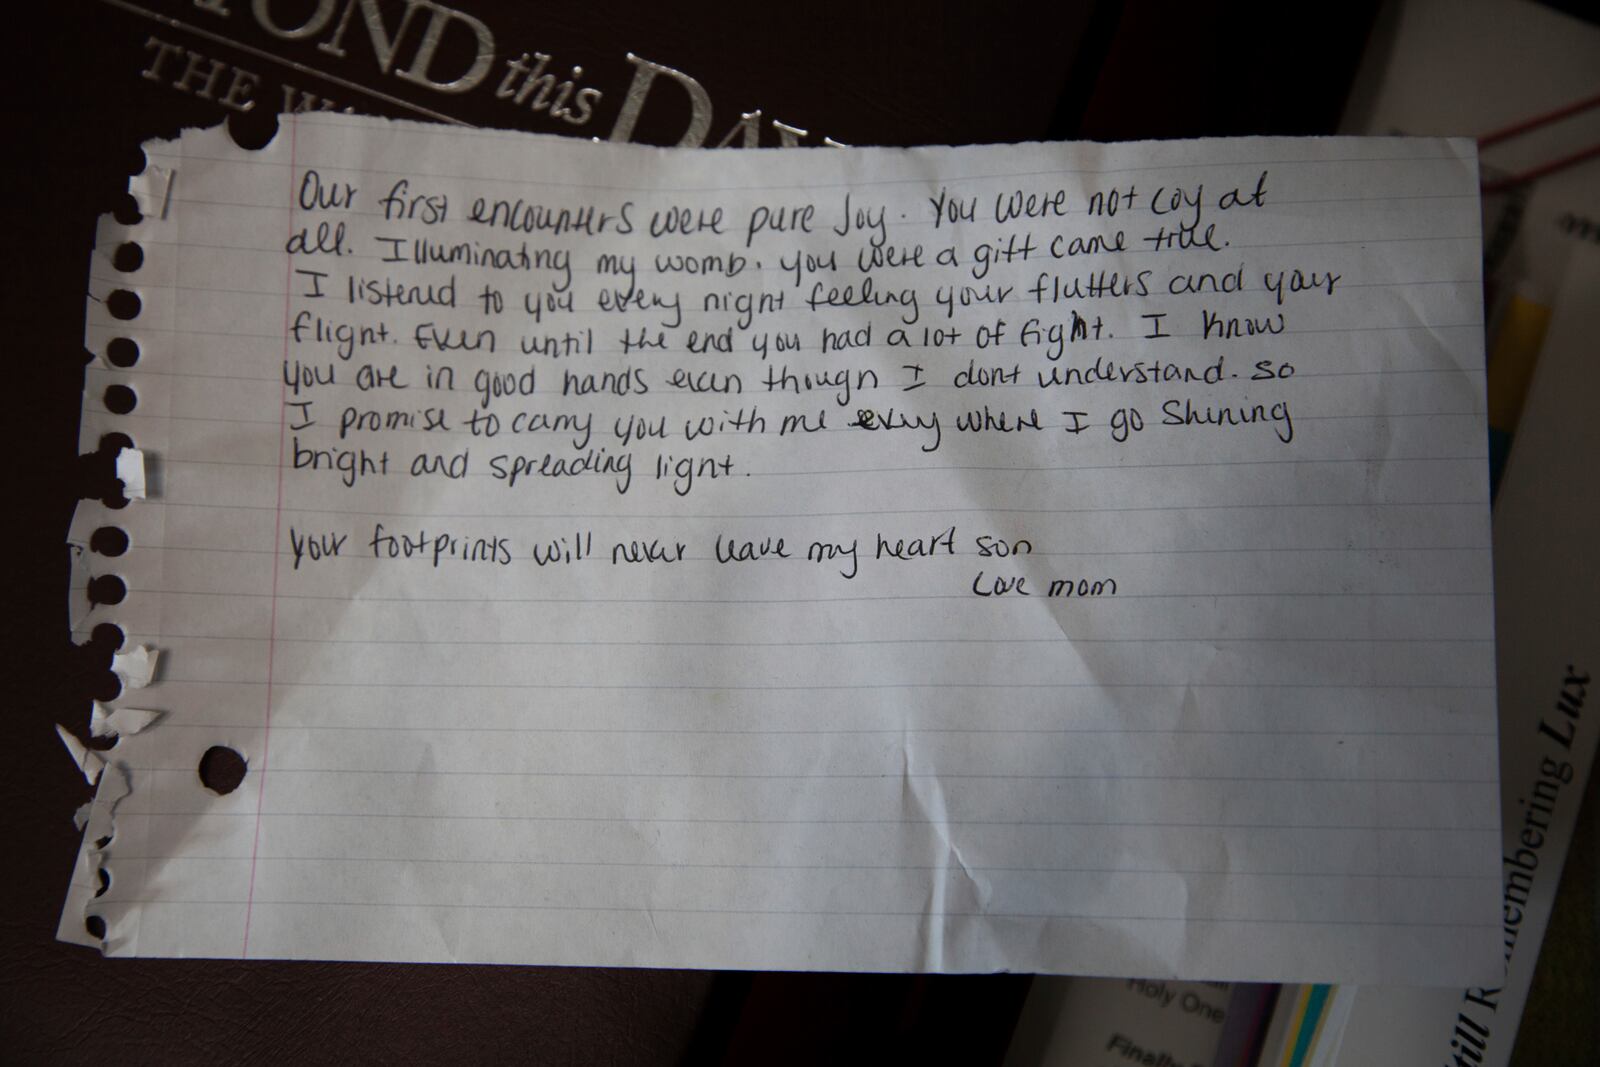 YOND this DAY
THE
Our first encounters were pure Joy. You were not coy at
all. Illuminating my womb. you were a gift came true.
I listened to you every night feeling your flutters and your
flight. Even until the end you had a lot of fight. I know
you are in good hands even though I dont understand. so
I promise to carry you with me every where I go Shining
bright and spreading light.
your footprints will never leave my heart son
Love mom
Still Remembering Lux
Holy One
Finally